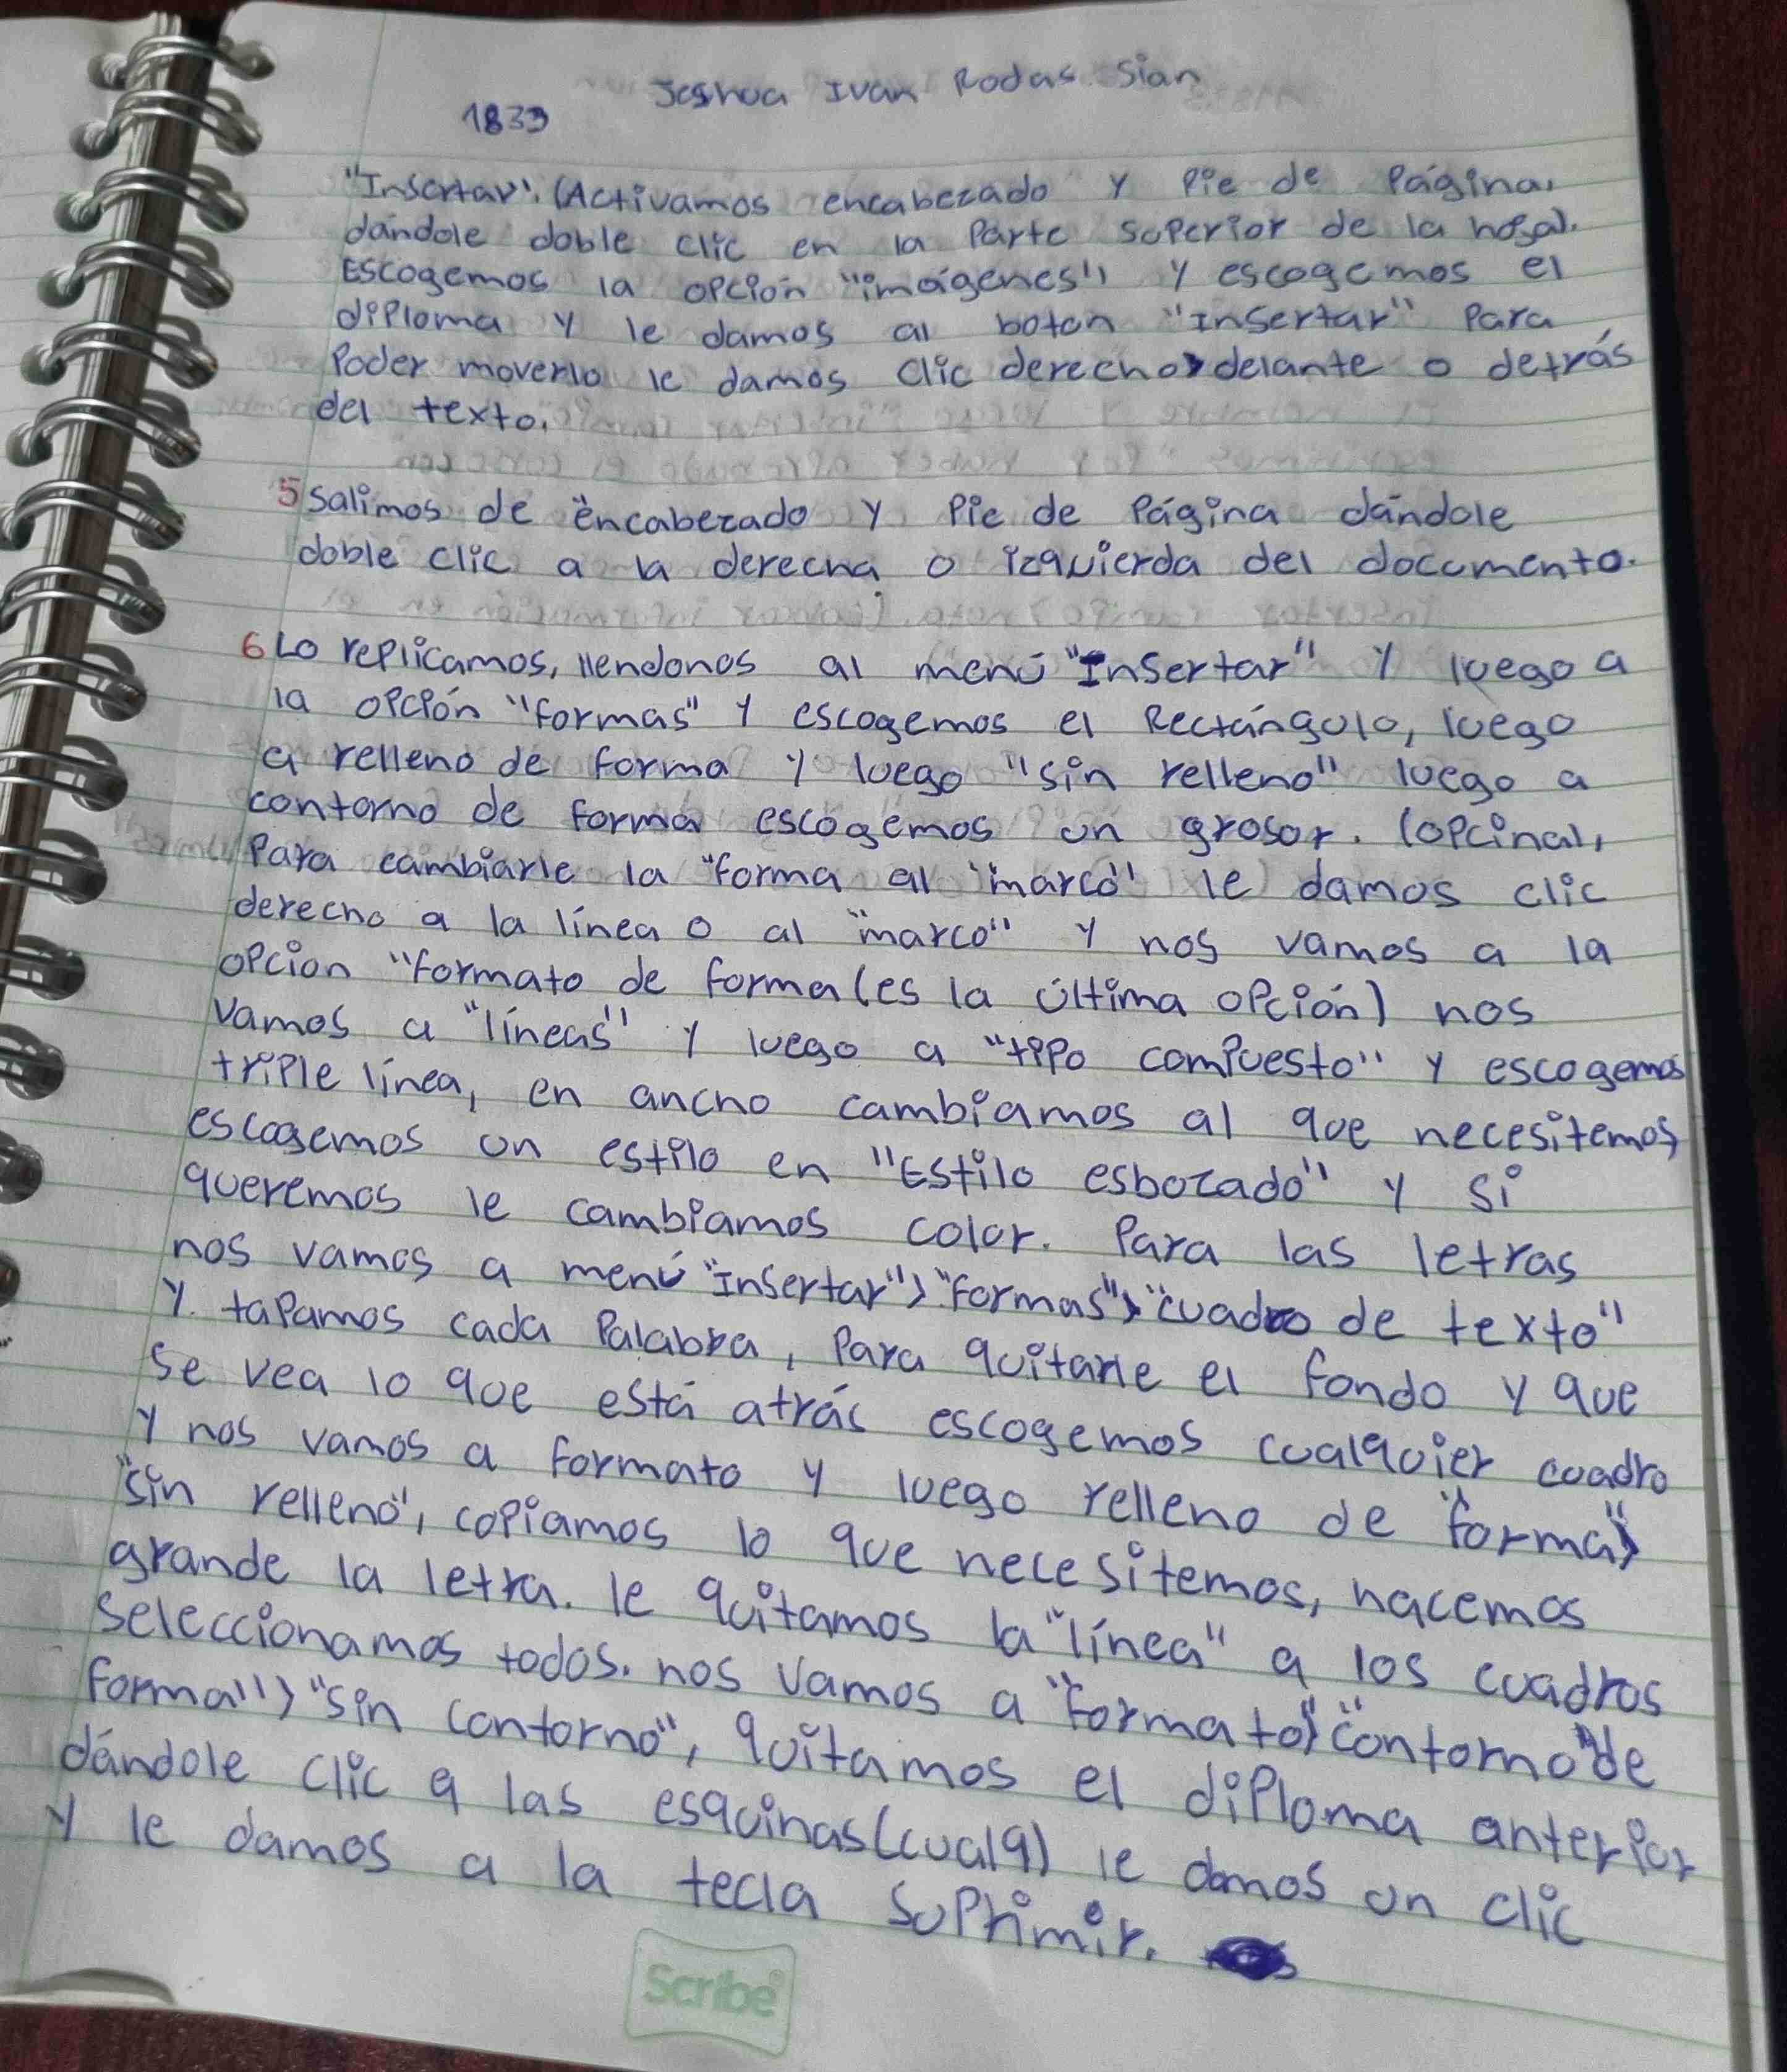 Joshua Ivan Rodas Sian
1839
"Insertar". (Activamos encabezado y Pie de Página,
dándole doble clic en la Parte superior de la hoja).
Escogemos la opción "imágenes" y escogemos el
diploma y le damos al boton "Insertar" Para
Poder moverlo le damos clic derecho> delante o detrás
del texto.
5 Salimos de "encabezado y Pie de Página dándole
doble clic a la derecha o izquierda del documento.
6 Lo replicamos, llendonos al menú "Insertar" y luego a
la opción "formas" y escogemos el Rectángulo, luego
a relleno de forma y luego "sin relleno" luego a
contorno de forma escogemos un grosor. (opcinal,
Para cambiarle la "forma al "marco" le damos clic
derecho a la línea o al "marco" y nos vamos a la
opcion "formato de forma (es la última opción) nos
vamos a "líneas" y luego a "tipo compuesto" y escogemos
triple línea, en ancho cambiamos al que necesitemos
escogemos un estilo en "Estilo esbozado" y si
queremos le cambiamos color. Para las letras
nos vamos a menú "Insertar">"formas">"cuadro de texto"
y tapamos cada Palabra, Para quitarle el fondo y que
se vea lo que está atrás escogemos cualquier cuadro
y nos vamos a formato y luego relleno de "forma">
"sin relleno", copiamos lo que necesitemos, hacemos
grande la letra. le quitamos la "línea" a los cuadros
seleccionamos todos. nos vamos a "formato>"contorno de
forma">"sin contorno", quitamos el diploma anterior
dándole clic a las esquinas (cualq) le damos un clic
y le damos a la tecla suprimir.
Scribe